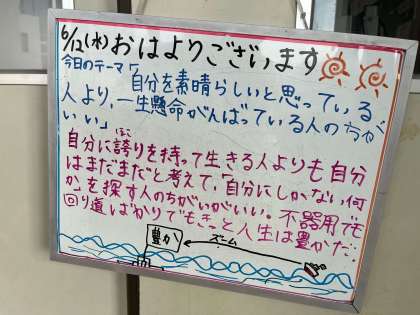 6/12(水)おはようございます
今日のテーマ「自分を素晴らしいと思っている
人より、一生懸命がんばっている人の方が
いい」
自分に誇り(ほこ)を持って生きる人よりも自分
はまだまだと考えて、「自分にしかない何
か」を探す人の方がいい。不器用でも
回り道ばかりでもきっと人生は豊かだ。
豊か
ズーム